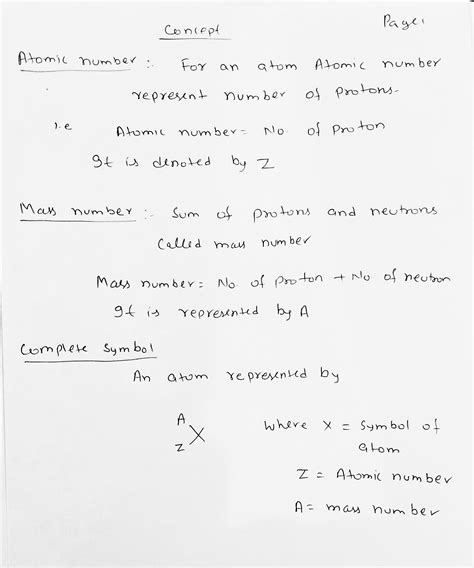 Concept
Page 1
Atomic number :- For an atom Atomic number
represent number of protons.
i.e Atomic number = No of proton
It is denoted by Z
Mass number :- Sum of protons and neutrons
Called mass number
Mass number = No of proton + No of neutron
It is represented by A
Complete Symbol
An atom represented by
A
Z X where X = Symbol of
atom
Z = Atomic number
A = mass number